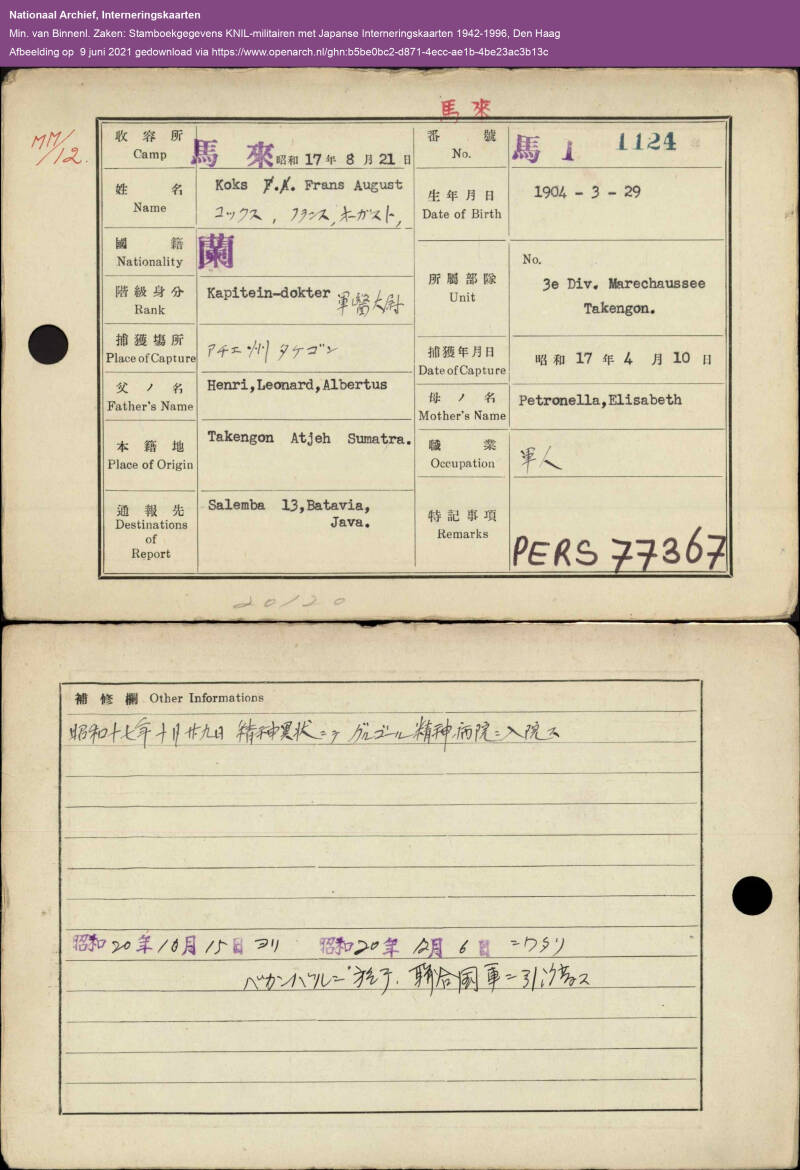 Nationaal Archief, Interneringskaarten
Min. van Binnenl. Zaken: Stamboekgegevens KNIL-militairen met Japanse Interneringskaarten 1942-1996, Den Haag
Afbeelding op 9 juni 2021 gedownload via https://www.openarch.nl/ghn:b5be0bc2-d871-4ecc-ae1b-4be23ac3b13c
馬來
MM/12.
收容所 Camp 馬來 昭和17年8月21日
番號 No. 馬 1 1124
姓名 Name Koks F.A. Frans August
コックス, フランス, オーガスト,
生年月日 Date of Birth 1904-3-29
國籍 Nationality 蘭
所屬部隊 Unit No.
3e Div. Marechaussee
Takengon.
階級身分 Rank Kapitein-dokter 軍醫大尉
捕獲場所 Place of Capture アチエ州 タケゴン
捕獲年月日 Date of Capture 昭和17年4月10日
父ノ名 Father's Name Henri,Leonard,Albertus
母ノ名 Mother's Name Petronella,Elisabeth
本籍地 Place of Origin Takengon Atjeh Sumatra.
職業 Occupation 軍人
通報先 Destinations of Report Salemba 13,Batavia,
Java.
特記事項 Remarks PERS 77367
20120
補修欄 Other Informations
昭和十七年十月廿九日 精神異狀ニテ グルゴール精神病院ニ入院ス
昭和20年10月15日ヨリ 昭和20年12月6日ニワタリ
パカンバルニ於テ、聯合国軍ニ引渡ス